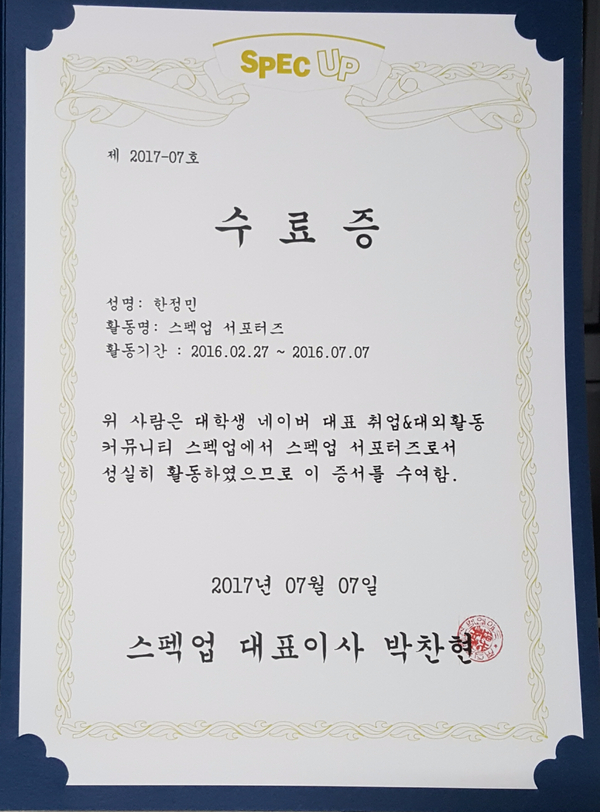 SPEC UP
제 2017-07호
수 료 증
성명: 한정민
활동명: 스펙업 서포터즈
활동기간 : 2016.02.27 ~ 2016.07.07
위 사람은 대학생 네이버 대표 취업&대외활동
커뮤니티 스펙업에서 스펙업 서포터즈로서
성실히 활동하였으므로 이 증서를 수여함.
2017년 07월 07일
스펙업 대표이사 박찬현